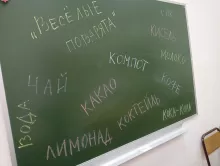 "ВЕСЁЛЫЕ
ПОВАРЯТА"
СОК
КИСЕЛЬ
КОМПОТ
МОЛОКО
ЧАЙ
КОФЕ
КАКАО
ВОДА
КОКТЕЙЛЬ
ЛИМОНАД
КОКА-КОЛА